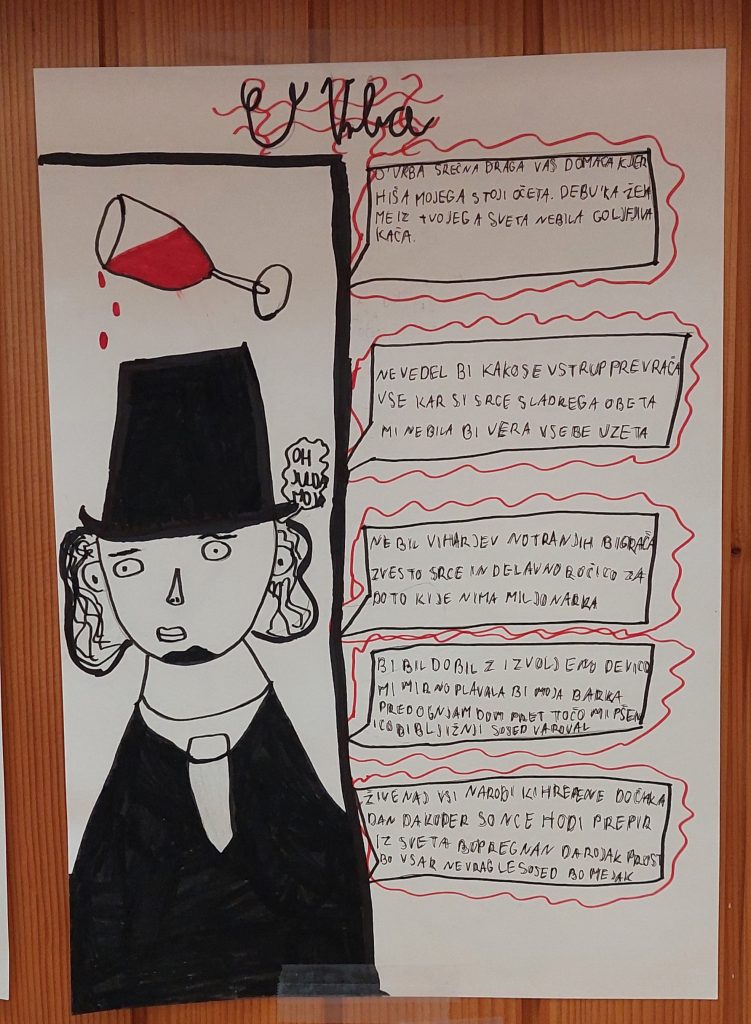 O Vrba
O VRBA SREČNA DRAGA VAS DOMAČA KJER
HIŠA MOJEGA STOJI OČETA. DEBUKA ŽEJA
ME IZ TVOJEGA SVETA NEBILA GOLJFJIVA
KAČA.
NEVEDEL BI KAKOSE VSTRUP PREVRAČA
VSE KAR SI SRCE SLADKEGA OBETA
MI NEBILA BI VERA VSEBE VZETA
NE BIL VIHARJEV NOTRANJIH BIGRAČA
ZVESTO SRCE IN DELAVNO ROČICO ZA
DOTO KIJE NIMA MILJONARKA
BI BIL DOBIL Z IZVOLJENO DEVICO
MI MIRNO PLAVALA BI MOJA BARKA
PREDOGNJAM DOM PRET TOČO MI PŠEN
ICO BI BLJIŽNJI SOJED VAROVAL
ŽIVE NAJ VSI NARODI KI HREPENE DOČAKA
DAN DAKODER SONCE HODI PREPIR
IZ SVETA BOPREGNAN DAROJAK PROST
BO VSAK NEVRAG LE SOJED BO MEJAK
OH